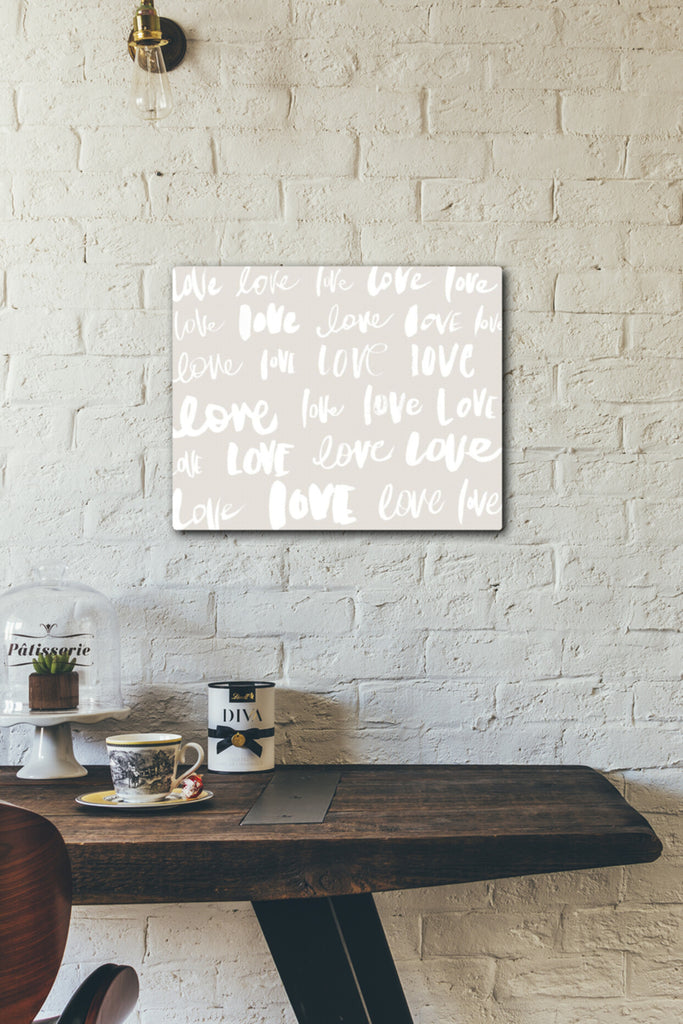 love love love love love
love love love love love
love love love love
love love love LOVE
love LOVE love love
Love love love love
Pâtisserie
Lindt
DIVA